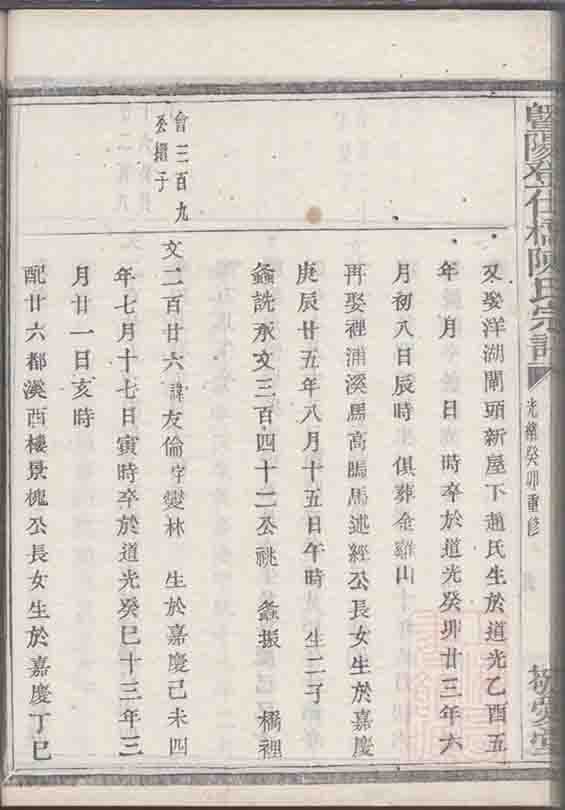 暨陽登仕橋陳氏宗譜
光緒癸卯重修
敬愛堂
又娶洋湖閘頭新屋下趙氏生於道光乙酉五
年 月 日 時卒於道光癸卯廿三年六
月初八日辰時 俱葬金雞山
再娶裡浦溪馬高鳴馬述經公長女生於嘉慶
庚辰廿五年八月十五日午時 生二子
鑫詵承文三百四十二公祧 鑫振 橋裡
會三百九
公繼子
文二百廿六諱友倫字燮林 生於嘉慶己未四
年七月十七日寅時卒於道光癸巳十三年三
月廿一日亥時
配廿六都溪西樓景槐公長女生於嘉慶丁巳